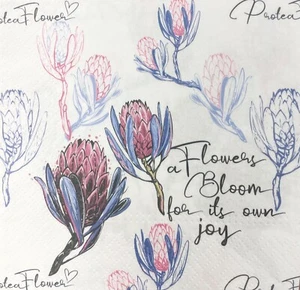 Protea Flower
Protea
a Flowers
Bloom
for its own
joy
Protea Flower
Protea Flower